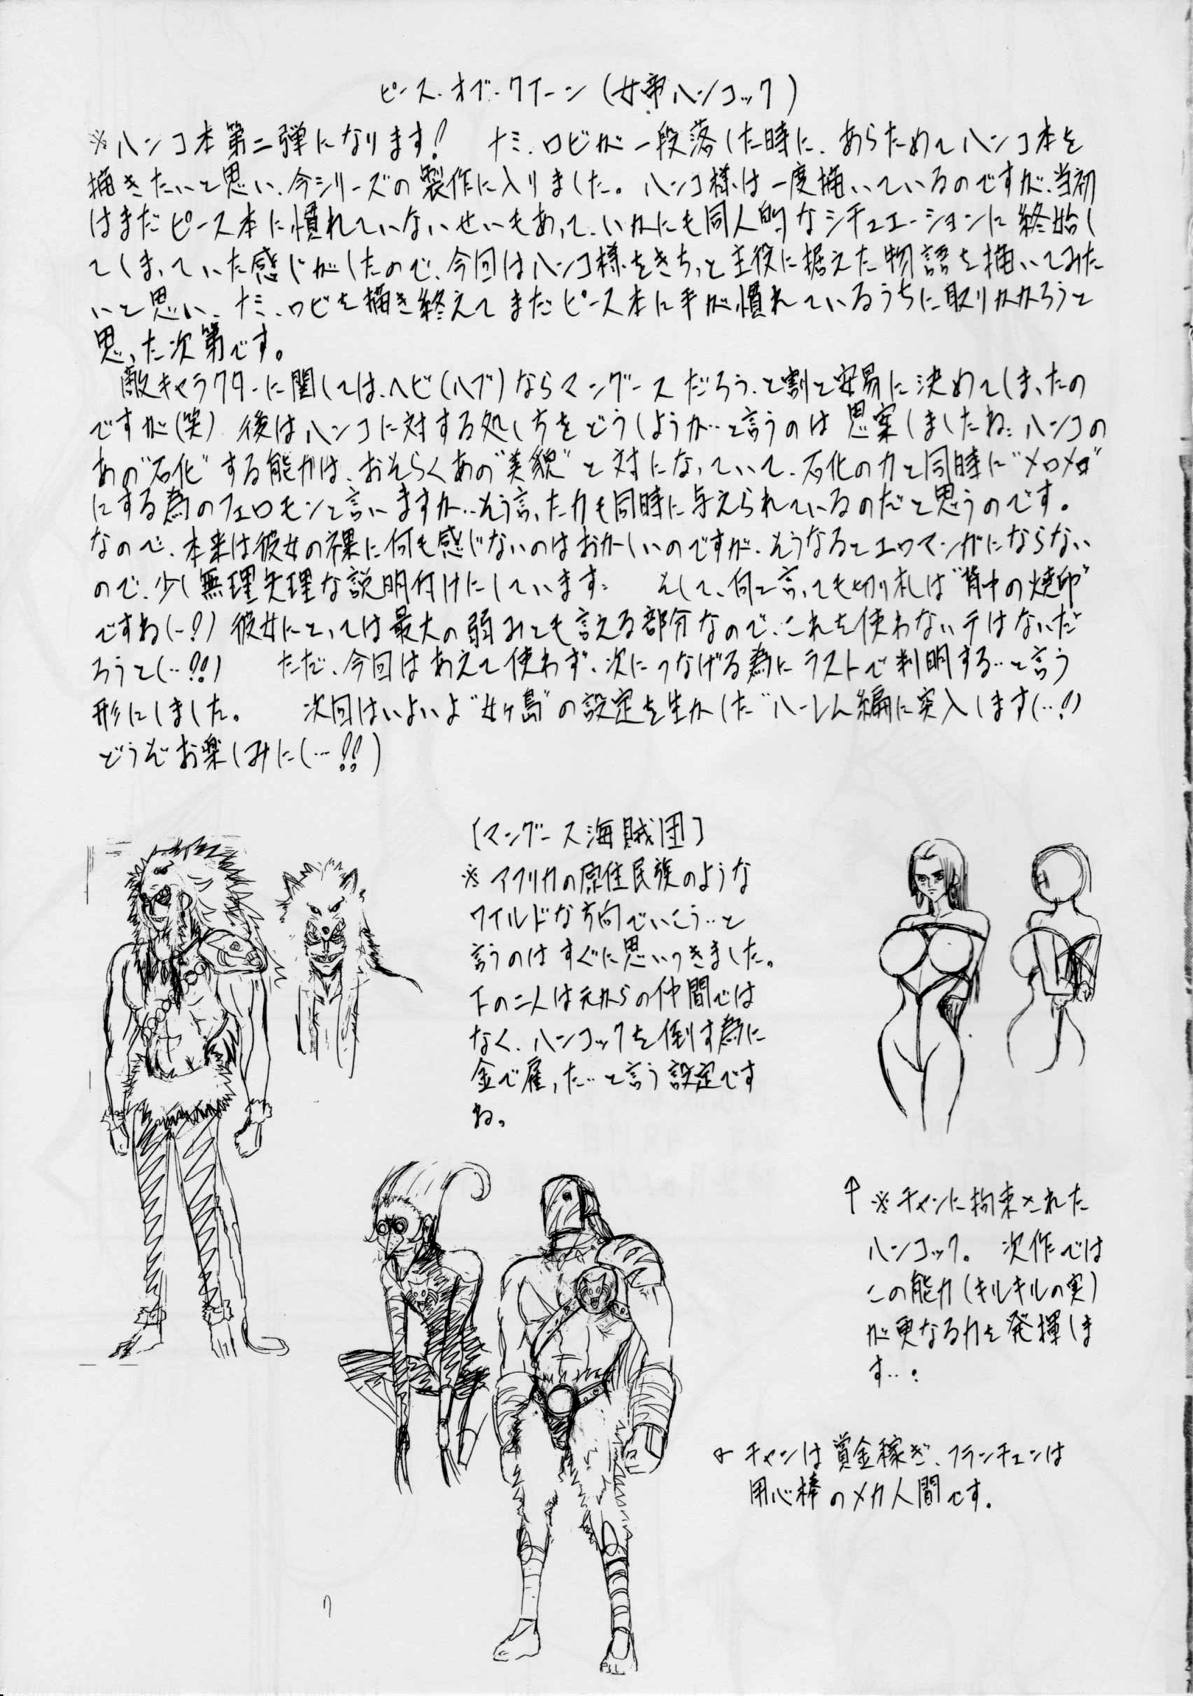 ピース・オブ・クイーン(女帝ハンコック)
※ハンコ本第二弾になります! ナミ、ロビが一段落した時に、あらためてハンコ本を
描きたいと思い、今シリーズの製作に入りました。ハンコ様は一度描いているのですが、当初
はまだピース本に慣れていないせいもあって、いかにも同人的なシチュエーションに終始し
てしまっていた感じがしたので、今回はハンコ様をきちっと主役に据えた物語を描いてみた
いと思い、ナミ、ロビを描き終えてまだピース本に手が慣れているうちに取りかかろうと
思った次第です。
敵キャラクターに関しては、ヘビ(ハブ)ならマングースだろう、と割と安易に決めてしまったの
ですが(笑) 後はハンコに対する処し方をどうしようか…と言うのは思案しましたね: ハンコの
あの“石化”する能力は、おそらくあの“美貌”と対になっていて、石化の力と同時に“メロメロ”
にする為のフェロモンと言いますか…そう言った力も同時に与えられているのだと思うのです。
なので、本来は彼女の裸に何も感じないのはおかしいのですが、そうなるとエロマンガにならない
ので、少し無理矢理な説明付けにしています: そして、何と言っても切り札は“背中の焼印”
ですね(…?) 彼女にとっては最大の弱みとも言える部分なので、これを使わないテはないだ
ろうと(…!?) ただ、今回はあえて使わず、次につなげる為にラストで判明する…と言う
形にしました。 次回はいよいよ“女ヶ島”の設定を生かした“ハーレム編に突入します(…?)
どうぞお楽しみに(…!!)
[マングース海賊団]
※アフリカの原住民族のような
ワイルドな方向でいこう…と
言うのはすぐに思いつきました。
下の二人は元からの仲間では
なく、ハンコックを倒す為に
金で雇った…と言う設定です
ね。
↑ ※チャンに拘束された
ハンコック。 次作では
この能力(キルキルの実)
が更なる力を発揮しま
す…:
← チャンは賞金稼ぎ、フランチェンは
用心棒のメカ人間です。